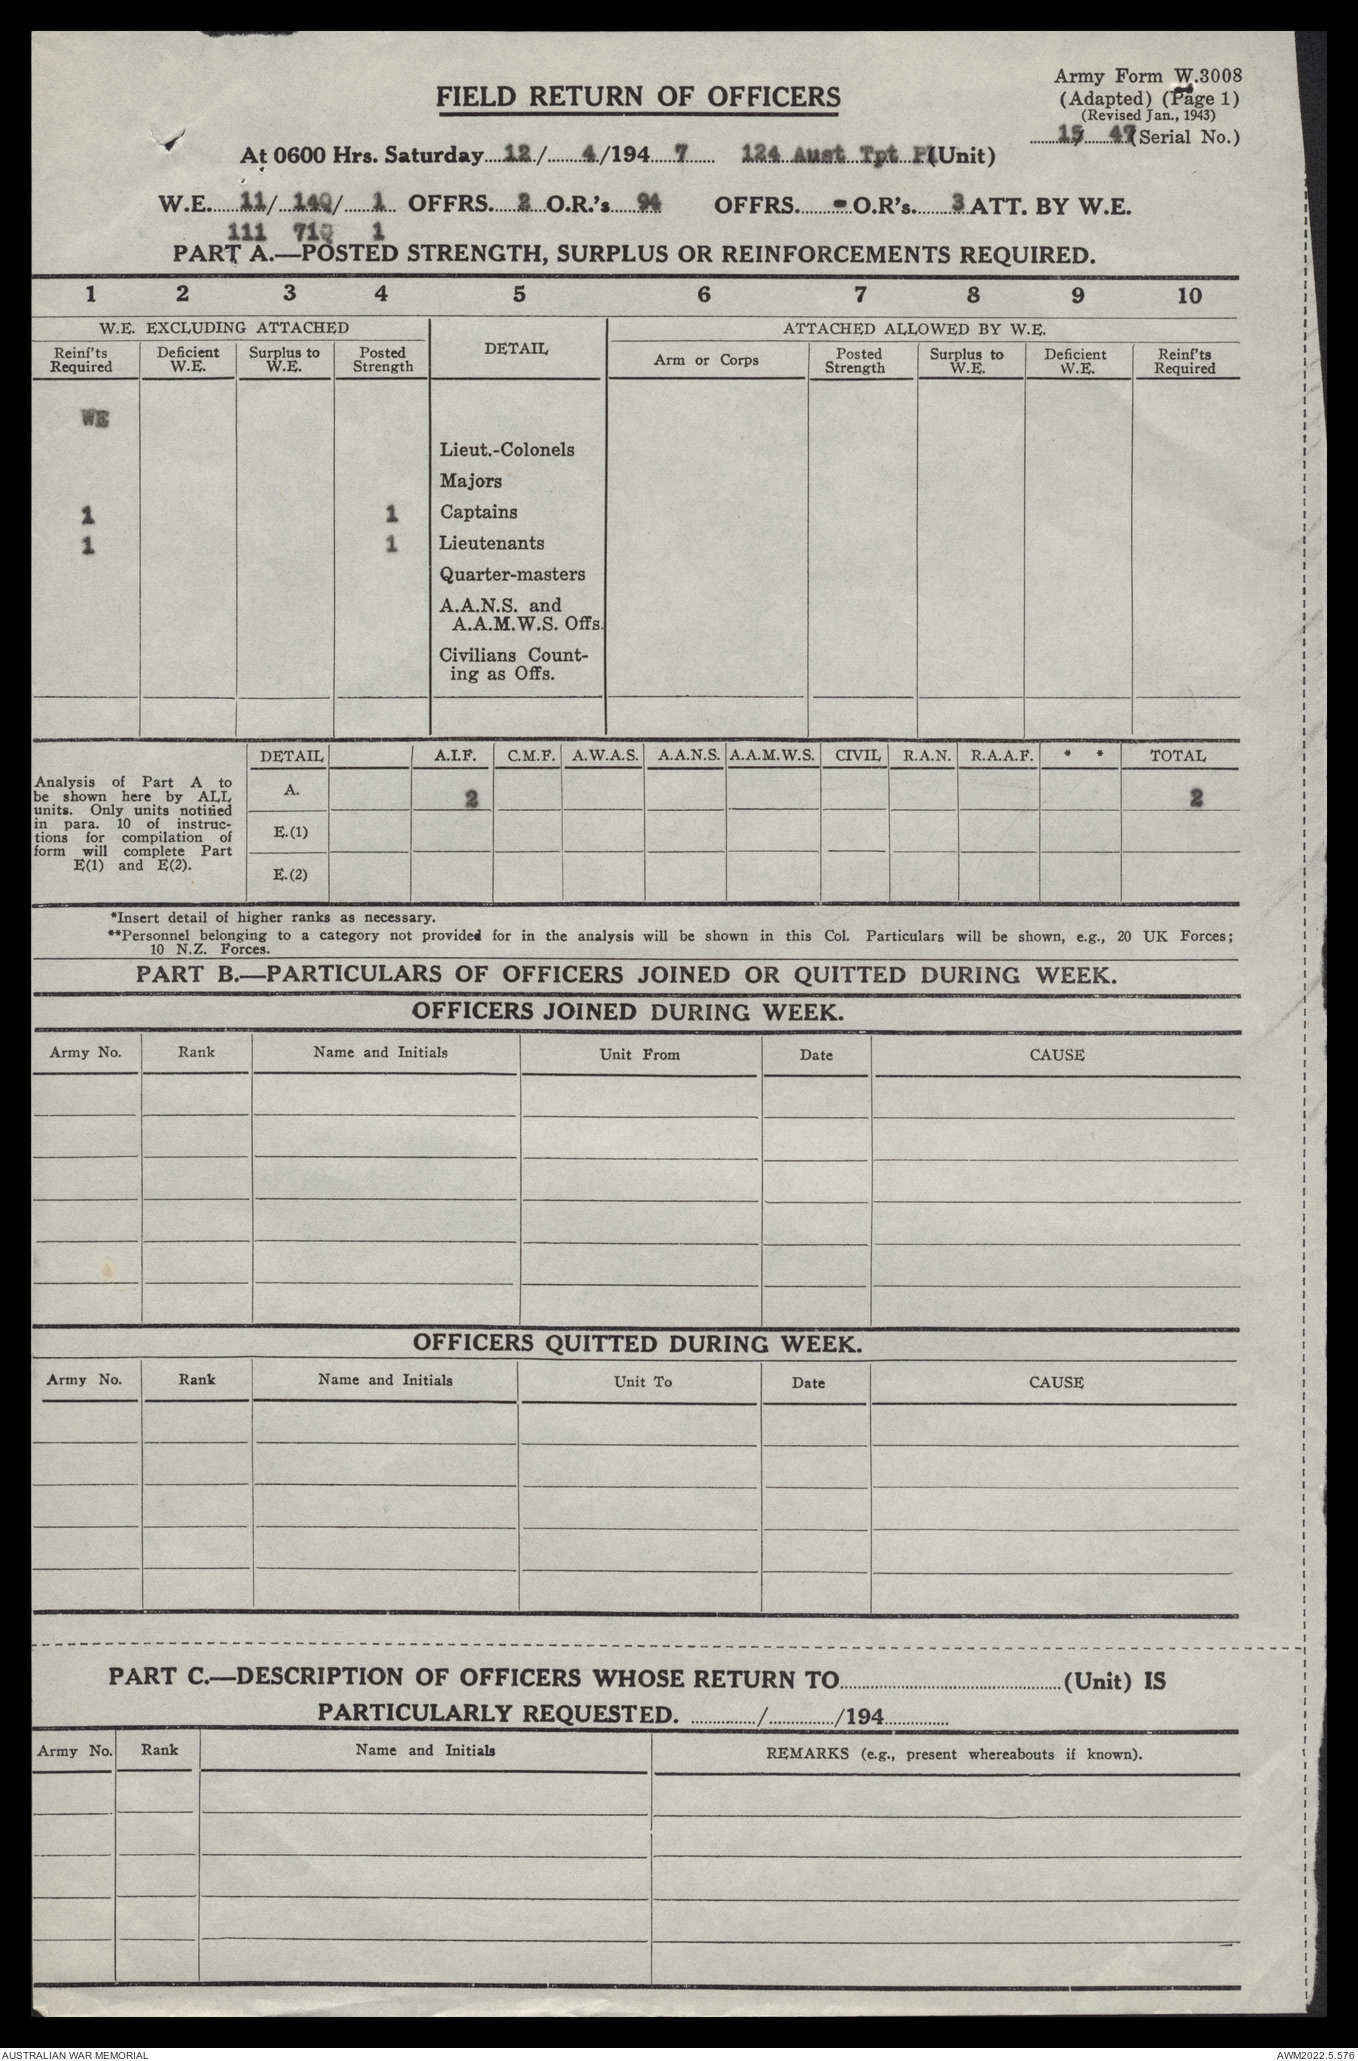 Army Form W.3008
FIELD RETURN OF OFFICERS
(Adapted) (Page 1)
(Revised Jan., 1943)
15/47 (Serial No.)
At 0600 Hrs. Saturday 12/4/194 7 124 Aust Tpt Pl (Unit)
W.E. 11/14Q/1 OFFRS. 2 O.R.'s 94 OFFRS. - O.R's. 3 ATT. BY W.E.
111 71Q 1
PART A.—POSTED STRENGTH, SURPLUS OR REINFORCEMENTS REQUIRED.
1 2 3 4 5 6 7 8 9 10
W.E. EXCLUDING ATTACHED DETAIL ATTACHED ALLOWED BY W.E.
Reinf'ts Required Deficient W.E. Surplus to W.E. Posted Strength Arm or Corps Posted Strength Surplus to W.E. Deficient W.E. Reinf'ts Required
WE
Lieut.-Colonels
Majors
1 1 Captains
1 1 Lieutenants
Quarter-masters
A.A.N.S. and
A.A.M.W.S. Offs.
Civilians Count-
ing as Offs.
DETAIL A.I.F. C.M.F. A.W.A.S. A.A.N.S. A.A.M.W.S. CIVIL R.A.N. R.A.A.F. * * TOTAL
Analysis of Part A to
be shown here by ALL
units. Only units notified
in para. 10 of instruc-
tions for compilation of
form will complete Part
E(1) and E(2).
A. 2 2
E.(1)
E.(2)
*Insert detail of higher ranks as necessary.
**Personnel belonging to a category not provided for in the analysis will be shown in this Col. Particulars will be shown, e.g., 20 UK Forces;
10 N.Z. Forces.
PART B.—PARTICULARS OF OFFICERS JOINED OR QUITTED DURING WEEK.
OFFICERS JOINED DURING WEEK.
Army No. Rank Name and Initials Unit From Date CAUSE
OFFICERS QUITTED DURING WEEK.
Army No. Rank Name and Initials Unit To Date CAUSE
PART C.—DESCRIPTION OF OFFICERS WHOSE RETURN TO (Unit) IS
PARTICULARLY REQUESTED. / /194
Army No. Rank Name and Initials REMARKS (e.g., present whereabouts if known).
AUSTRALIAN WAR MEMORIAL AWM2022.5.576